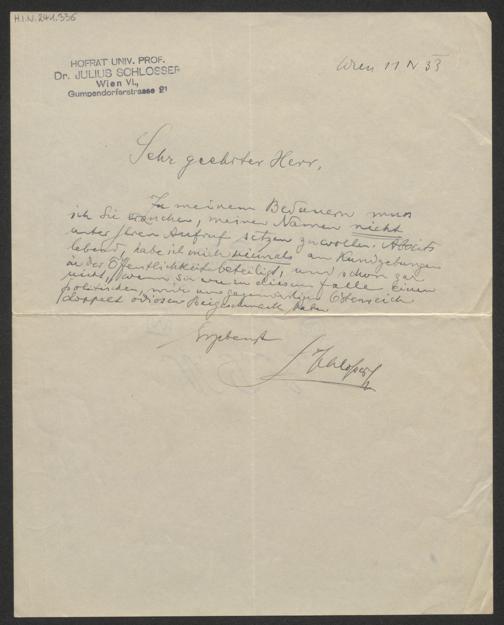 H.I.N. 241.336
HOFRAT UNIV. PROF.
Dr. JULIUS SCHLOSSER
Wien VI.,
Gumpendorferstrasse 21
Wien 11 IV 33
Sehr geehrter Herr,
Zu meinem Bedauern muss
ich Sie ersuchen, meinen Namen nicht
unter Ihren Aufruf setzen zu wollen.
lebend, habe ich mich niemals an Kundgebungen
in der Öffentlichkeit beteiligt, und schon gar
nicht, wenn sie wie in diesem Falle einen
politischen, mir im gegenwärtigen Österreich
doppelt odiosen Beigeschmack haben
Ergebenst
JSchlosser